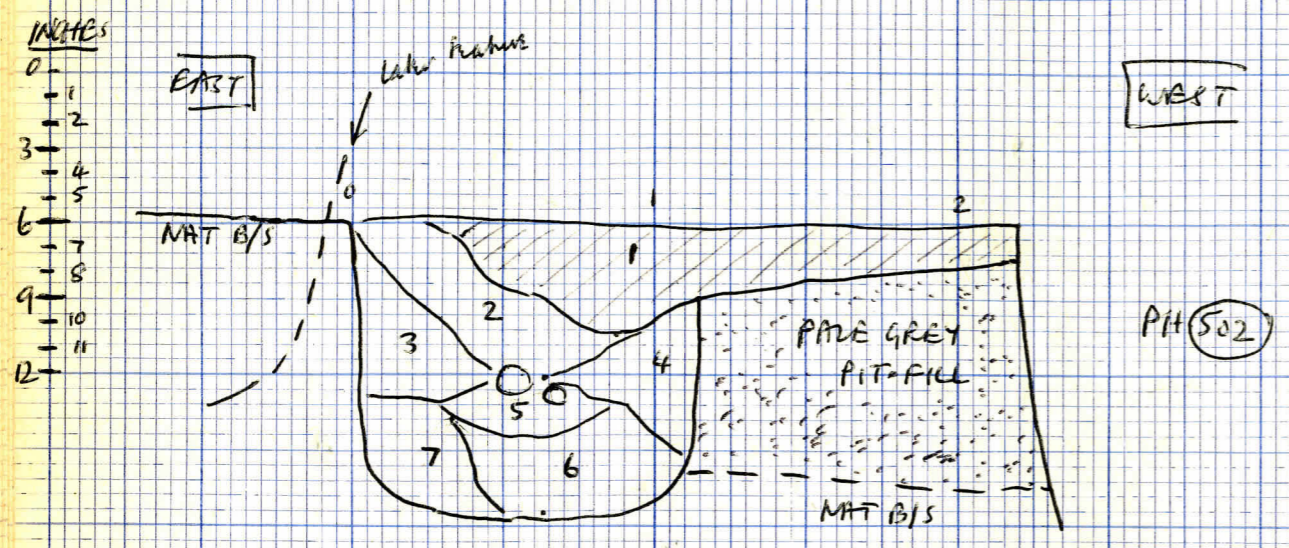 INCHES
0
1
2
3
4
5
6
7
8
9
10
11
12
EAST
Later feature
WEST
0
1
2
NAT B/S
1
2
3
4
5
6
7
PALE GREY
PIT-FILL
NAT B/S
PH 502